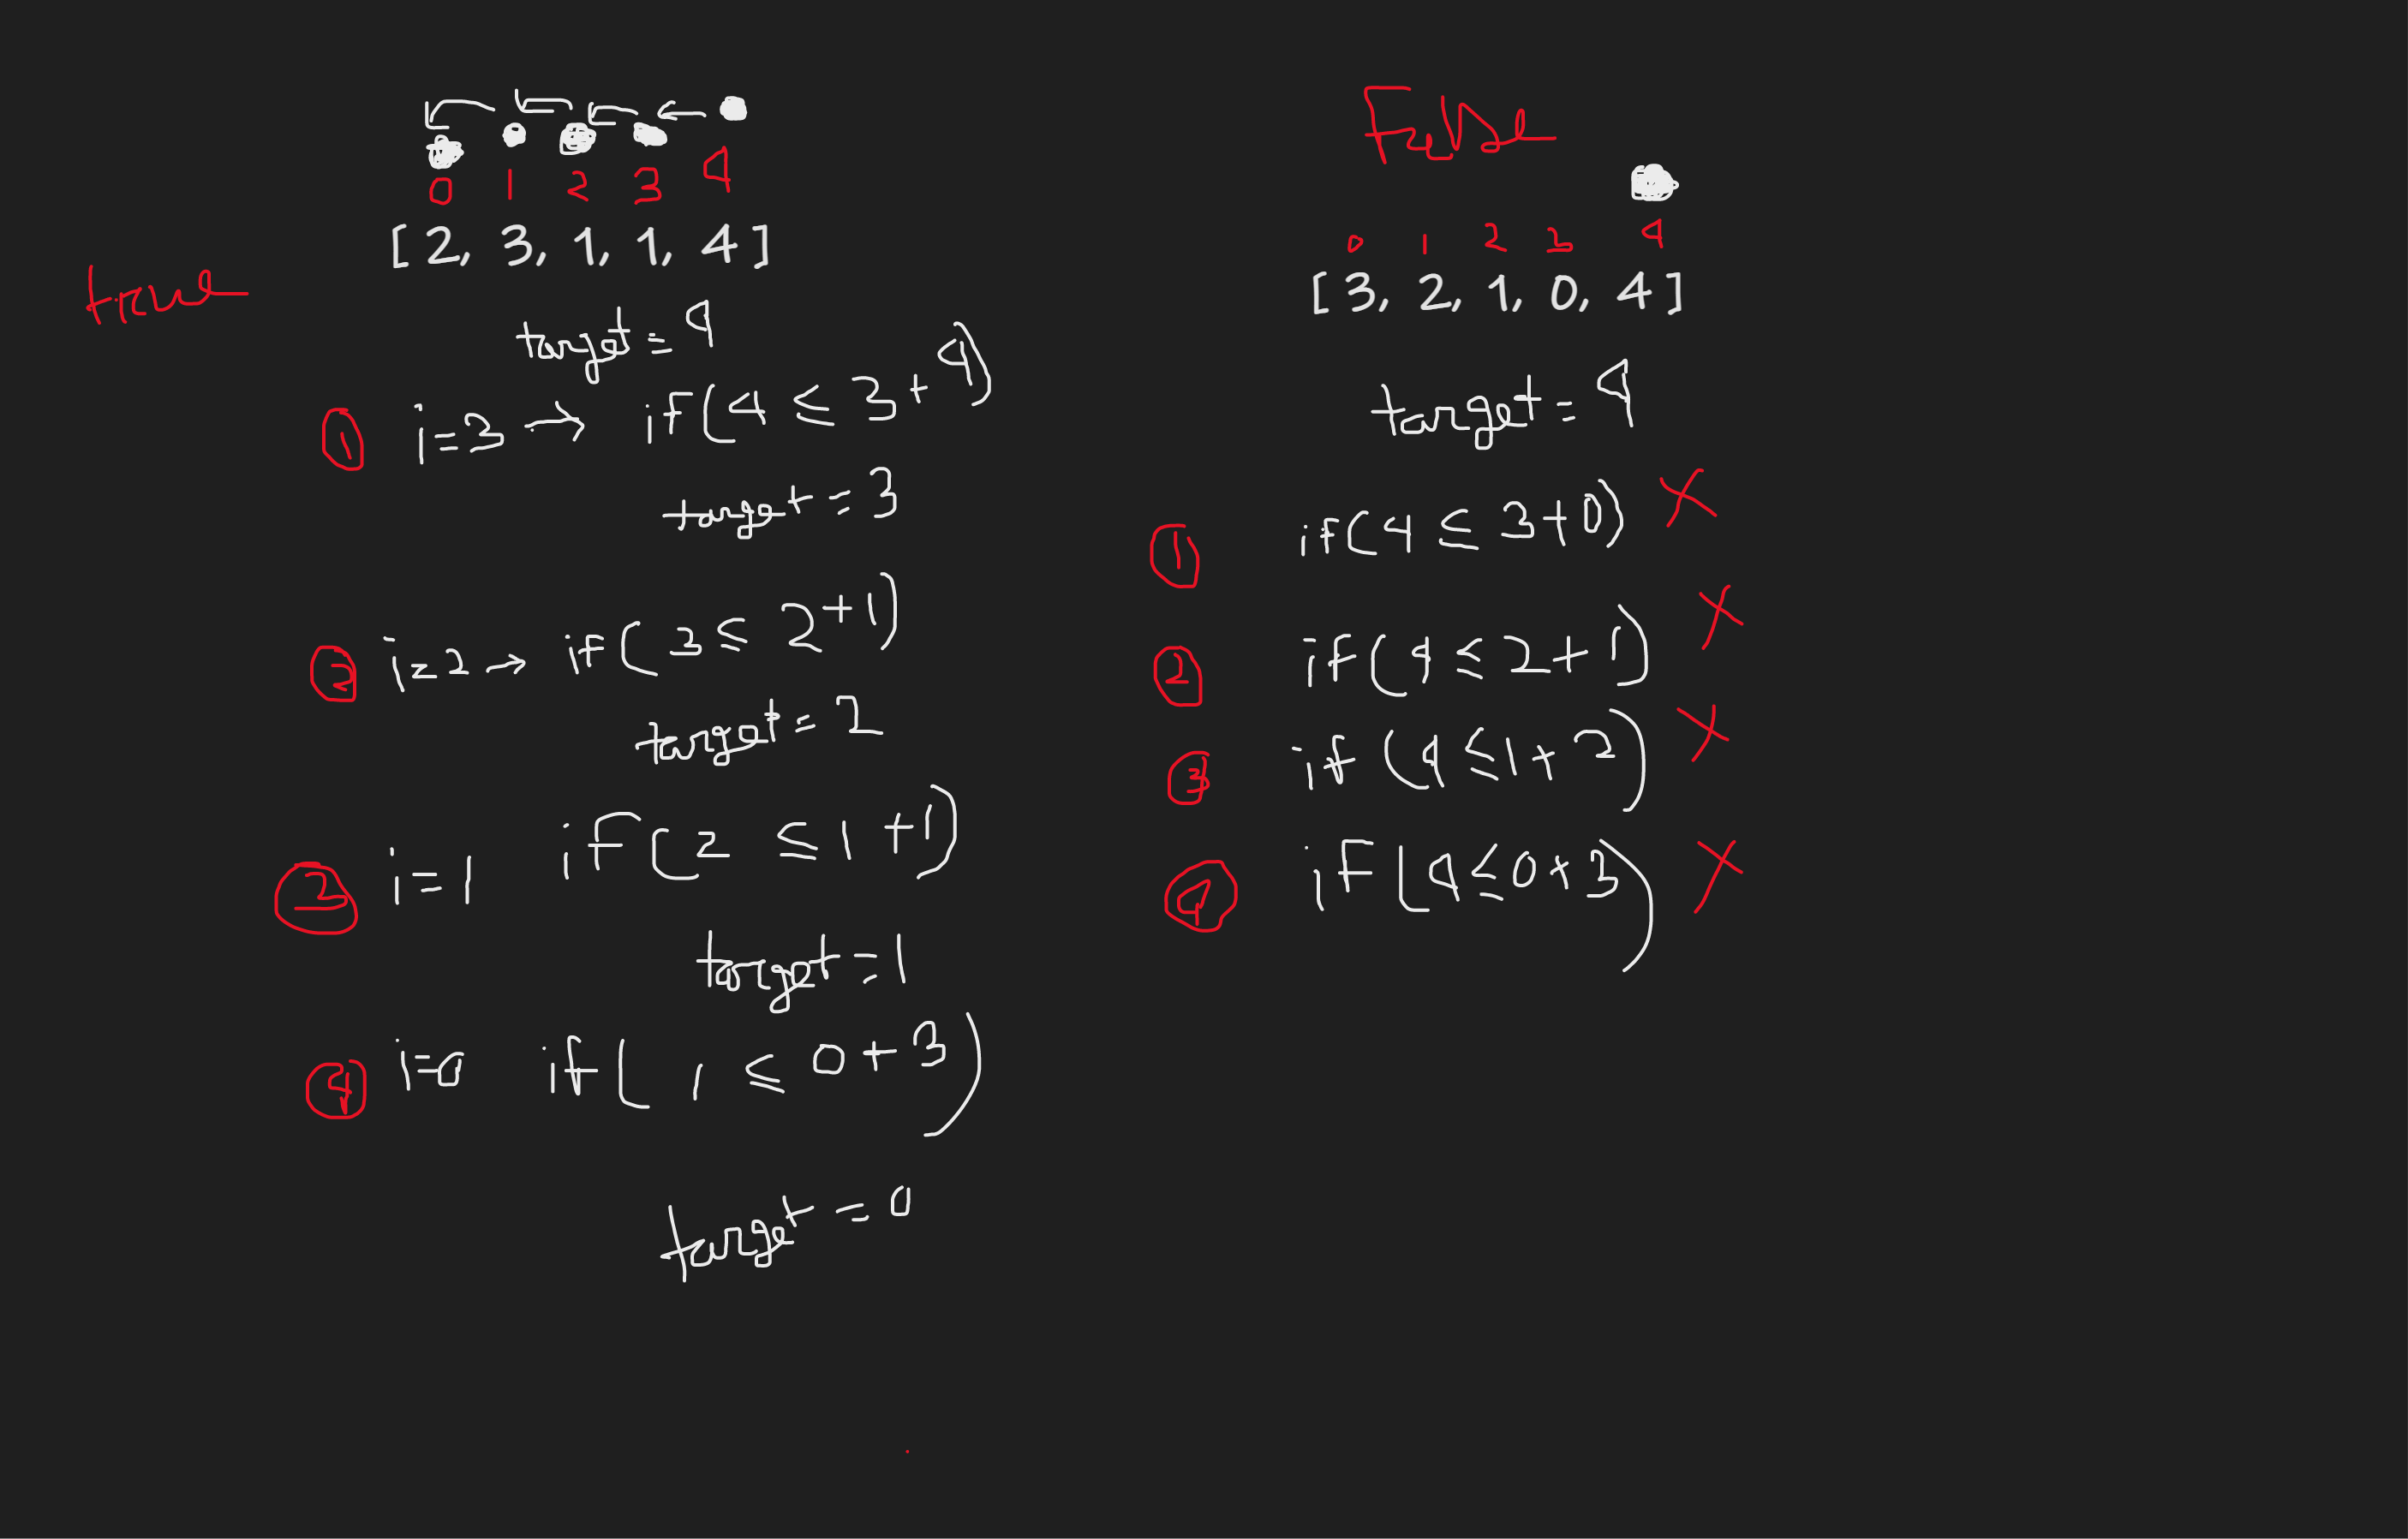 0 1 2 3 4
[2, 3, 1, 1, 4]
true
target = 4
① i=3 → if(4 ≤ 3 + 4)
target = 3
② i=2 → if(3 ≤ 2 + 1)
target = 2
③ i=1 if(2 ≤ 1 + 1)
target = 1
④ i=0 if(1 ≤ 0 + 3)
target = 0
False
0 1 2 3 4
[3, 2, 1, 0, 4]
target = 4
① if(4 ≤ 3+0) X
② if(4 ≤ 2+1) X
③ if(4 ≤ 1+2) X
④ if(4 ≤ 0+3) X